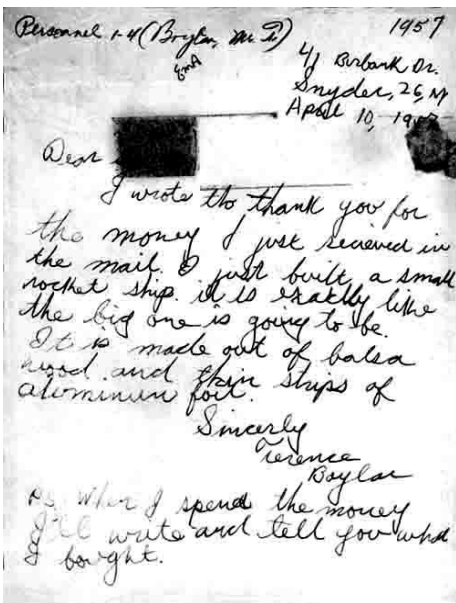 Personnel 1-4 (Boylan, Mr. T.) 1957
EmA
41 Burbank Dr.
Snyder, 26, N
April 10, 1957
Dear
I wrote tho thank you for
the money I just recieved in
the mail. I just built a small
rocket ship. it is exaktly like
the big one is going to be.
It is made out of balsa
wood and thin strips of
aluminum foil.
Sincerly
Terence
Boylan
PS. When I spend the money
I'll write and tell you what
I bought.